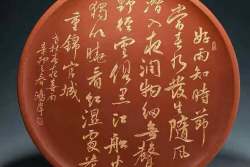 好雨知時節
當春乃發生隨風
潛入夜潤物細無聲
野徑雲俱黑江船火
獨明曉看紅濕處花
重錦官城